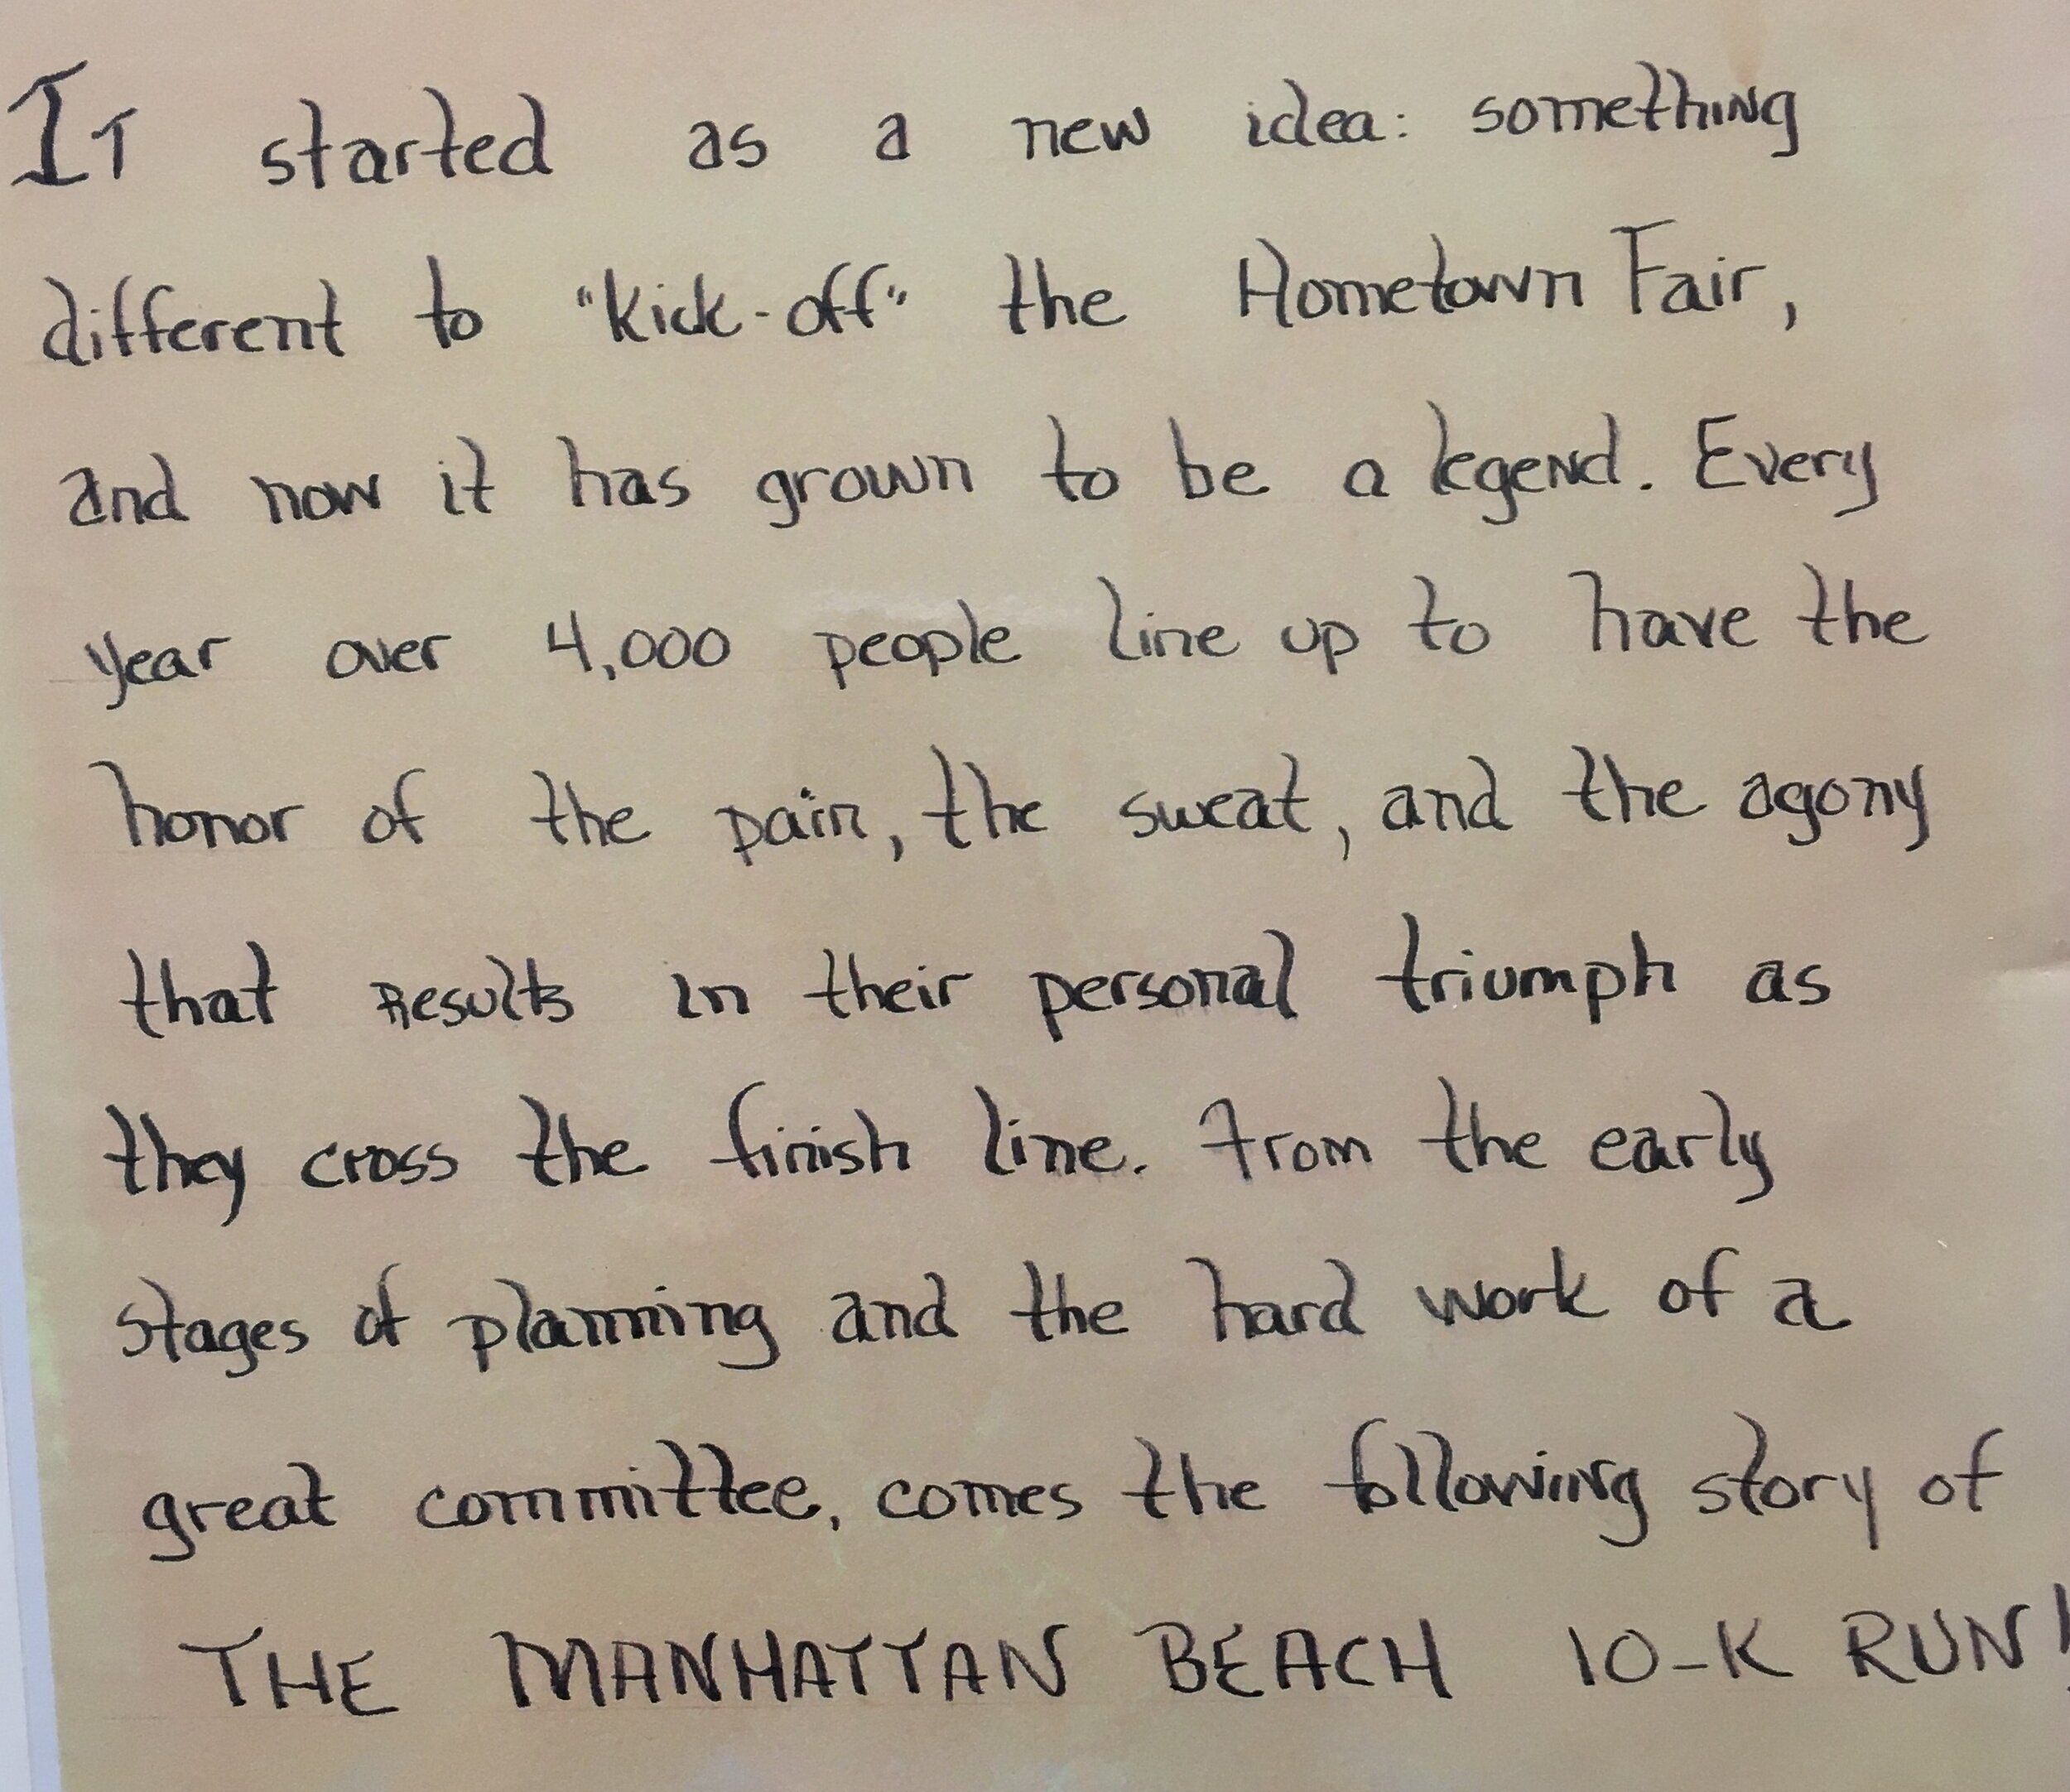 It started as a new idea: something
different to "kick-off" the Hometown Fair,
and now it has grown to be a legend. Every
year over 4,000 people line up to have the
honor of the pain, the sweat, and the agony
that Results in their personal triumph as
they cross the finish line. From the early
stages of planning and the hard work of a
great committee, comes the following story of
THE MANHATTAN BEACH 10-K RUN!